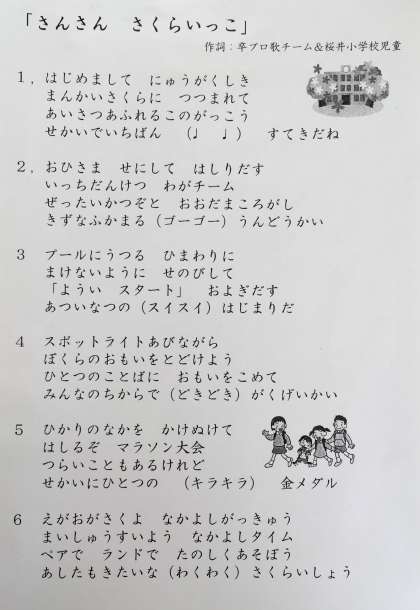 「さんさん　さくらいっこ」
作詞：卒プロ歌チーム＆桜井小学校児童
１，はじめまして　にゅうがくしき
まんかいさくらに　つつまれて
あいさつあふれるこのがっこう
せかいでいちばん　（♩　♩）　すてきだね
２，おひさま　せにして　はしりだす
いっちだんけつ　わがチーム
ぜったいかつぞと　おおだまころがし
きずなふかまる（ゴーゴー）うんどうかい
３　プールにうつる　ひまわりに
まけないように　せのびして
「ようい　スタート」　およぎだす
あついなつの（スイスイ）はじまりだ
４　スポットライトあびながら
ぼくらのおもいをとどけよう
ひとつのことばに　おもいをこめて
みんなのちからで（どきどき）がくげいかい
５　ひかりのなかを　かけぬけて
はしるぞ　マラソン大会
つらいこともあるけれど
せかいにひとつの　（キラキラ）　金メダル
６　えがおがさくよ　なかよしがっきゅう
まいしゅうすいよう　なかよしタイム
ペアで　ランドで　たのしくあそぼう
あしたもきたいな（わくわく）さくらいしょう